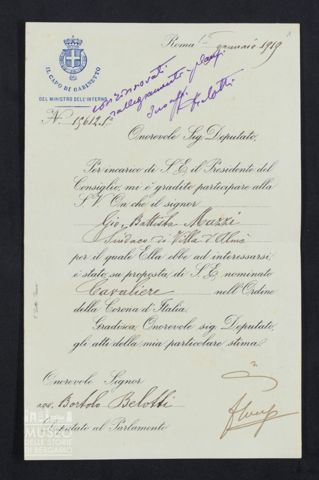 Roma, 1º gennaio 1919
IL CAPO DI GABINETTO
DEL MINISTRO DELL'INTERNO
con rinnovati
rallegramenti
Belotti
N. 15612.1
Onorevole Sig. Deputato,
Per incarico di S. E. il Presidente del
Consiglio, mi è gradito partecipare alla
S. V. On. che il signor
Gio. Battista Mazzi
Sindaco di Villa d'Almè
per il quale Ella ebbe ad interessarsi
è stato, su proposta di S. E. nominato
Cavaliere nell'Ordine
della Corona d'Italia.
Gradisca, Onorevole sig. Deputato,
gli atti della mia particolare stima.
Onorevole Signor
avv. Bortolo Belotti
Deputato al Parlamento
MUSEO
DELLE STORIE
DI BERGAMO